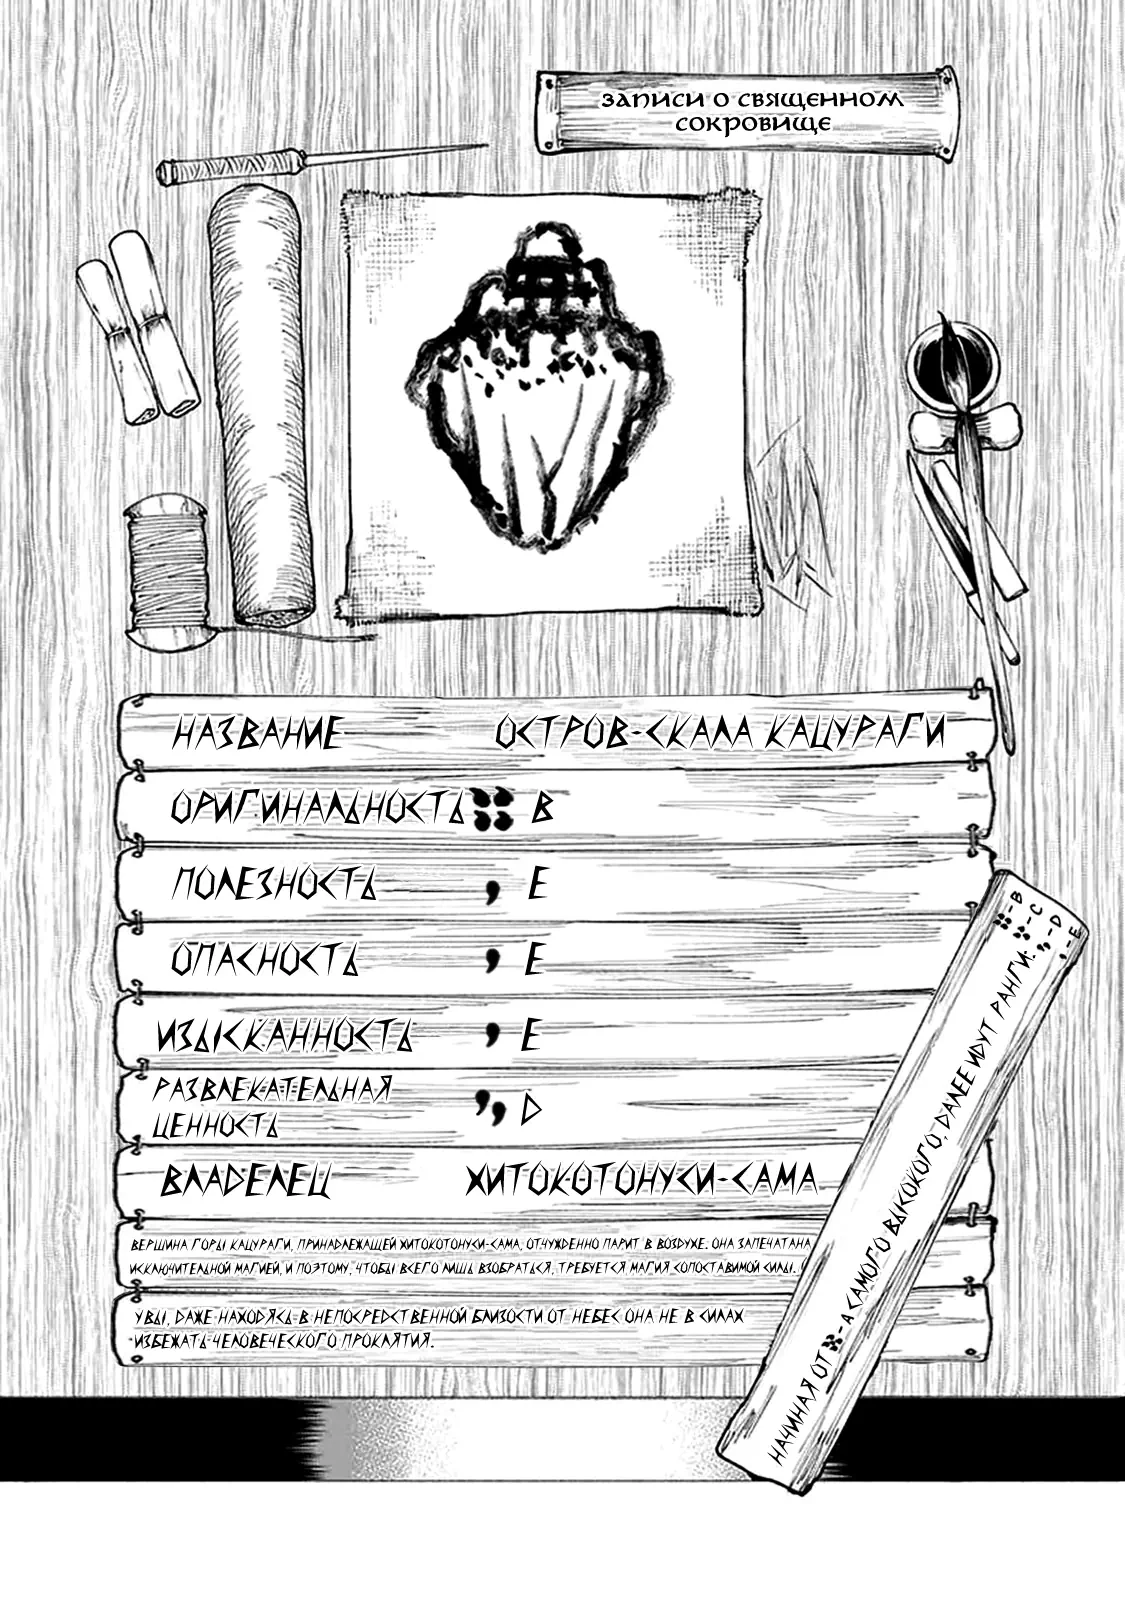 ЗАПИСИ О СВЯЩЕННОМ
СОКРОВИЩЕ
НАЗВАНИЕ ОСТРОВ-СКАЛА КАЦУРАГИ
ОРИГИНАЛЬНОСТЬ B
ПОЛЕЗНОСТЬ E
ОПАСНОСТЬ E
ИЗЫСКАННОСТЬ E
РАЗВЛЕКАТЕЛЬНАЯ
ЦЕННОСТЬ D
ВЛАДЕЛЕЦ ХИТОКОТОНУСИ-САМА
ВЕРШИНА ГОРЫ КАЦУРАГИ, ПРИНАДЛЕЖАЩЕЙ ХИТОКОТОНУСИ-САМА, ОТЧУЖДЕННО ПАРИТ В ВОЗДУХЕ. ОНА ЗАПЕЧАТАНА
ИСКЛЮЧИТЕЛЬНОЙ МАГИЕЙ, И ПОЭТОМУ, ЧТОБЫ ВСЕГО ЛИШЬ ВЗОБРАТЬСЯ, ТРЕБУЕТСЯ МАГИЯ СОПОСТАВИМОЙ СИЛЫ.
УВЫ, ДАЖЕ НАХОДЯСЬ В НЕПОСРЕДСТВЕННОЙ БЛИЗОСТИ ОТ НЕБЕС ОНА НЕ В СИЛАХ
ИЗБЕЖАТЬ ЧЕЛОВЕЧЕСКОГО ПРОКЛЯТИЯ.
НАЧИНАЯ ОТ - A САМОГО ВЫСОКОГО, ДАЛЕЕ ИДУТ РАНГИ:
- B
- C
- D
- E